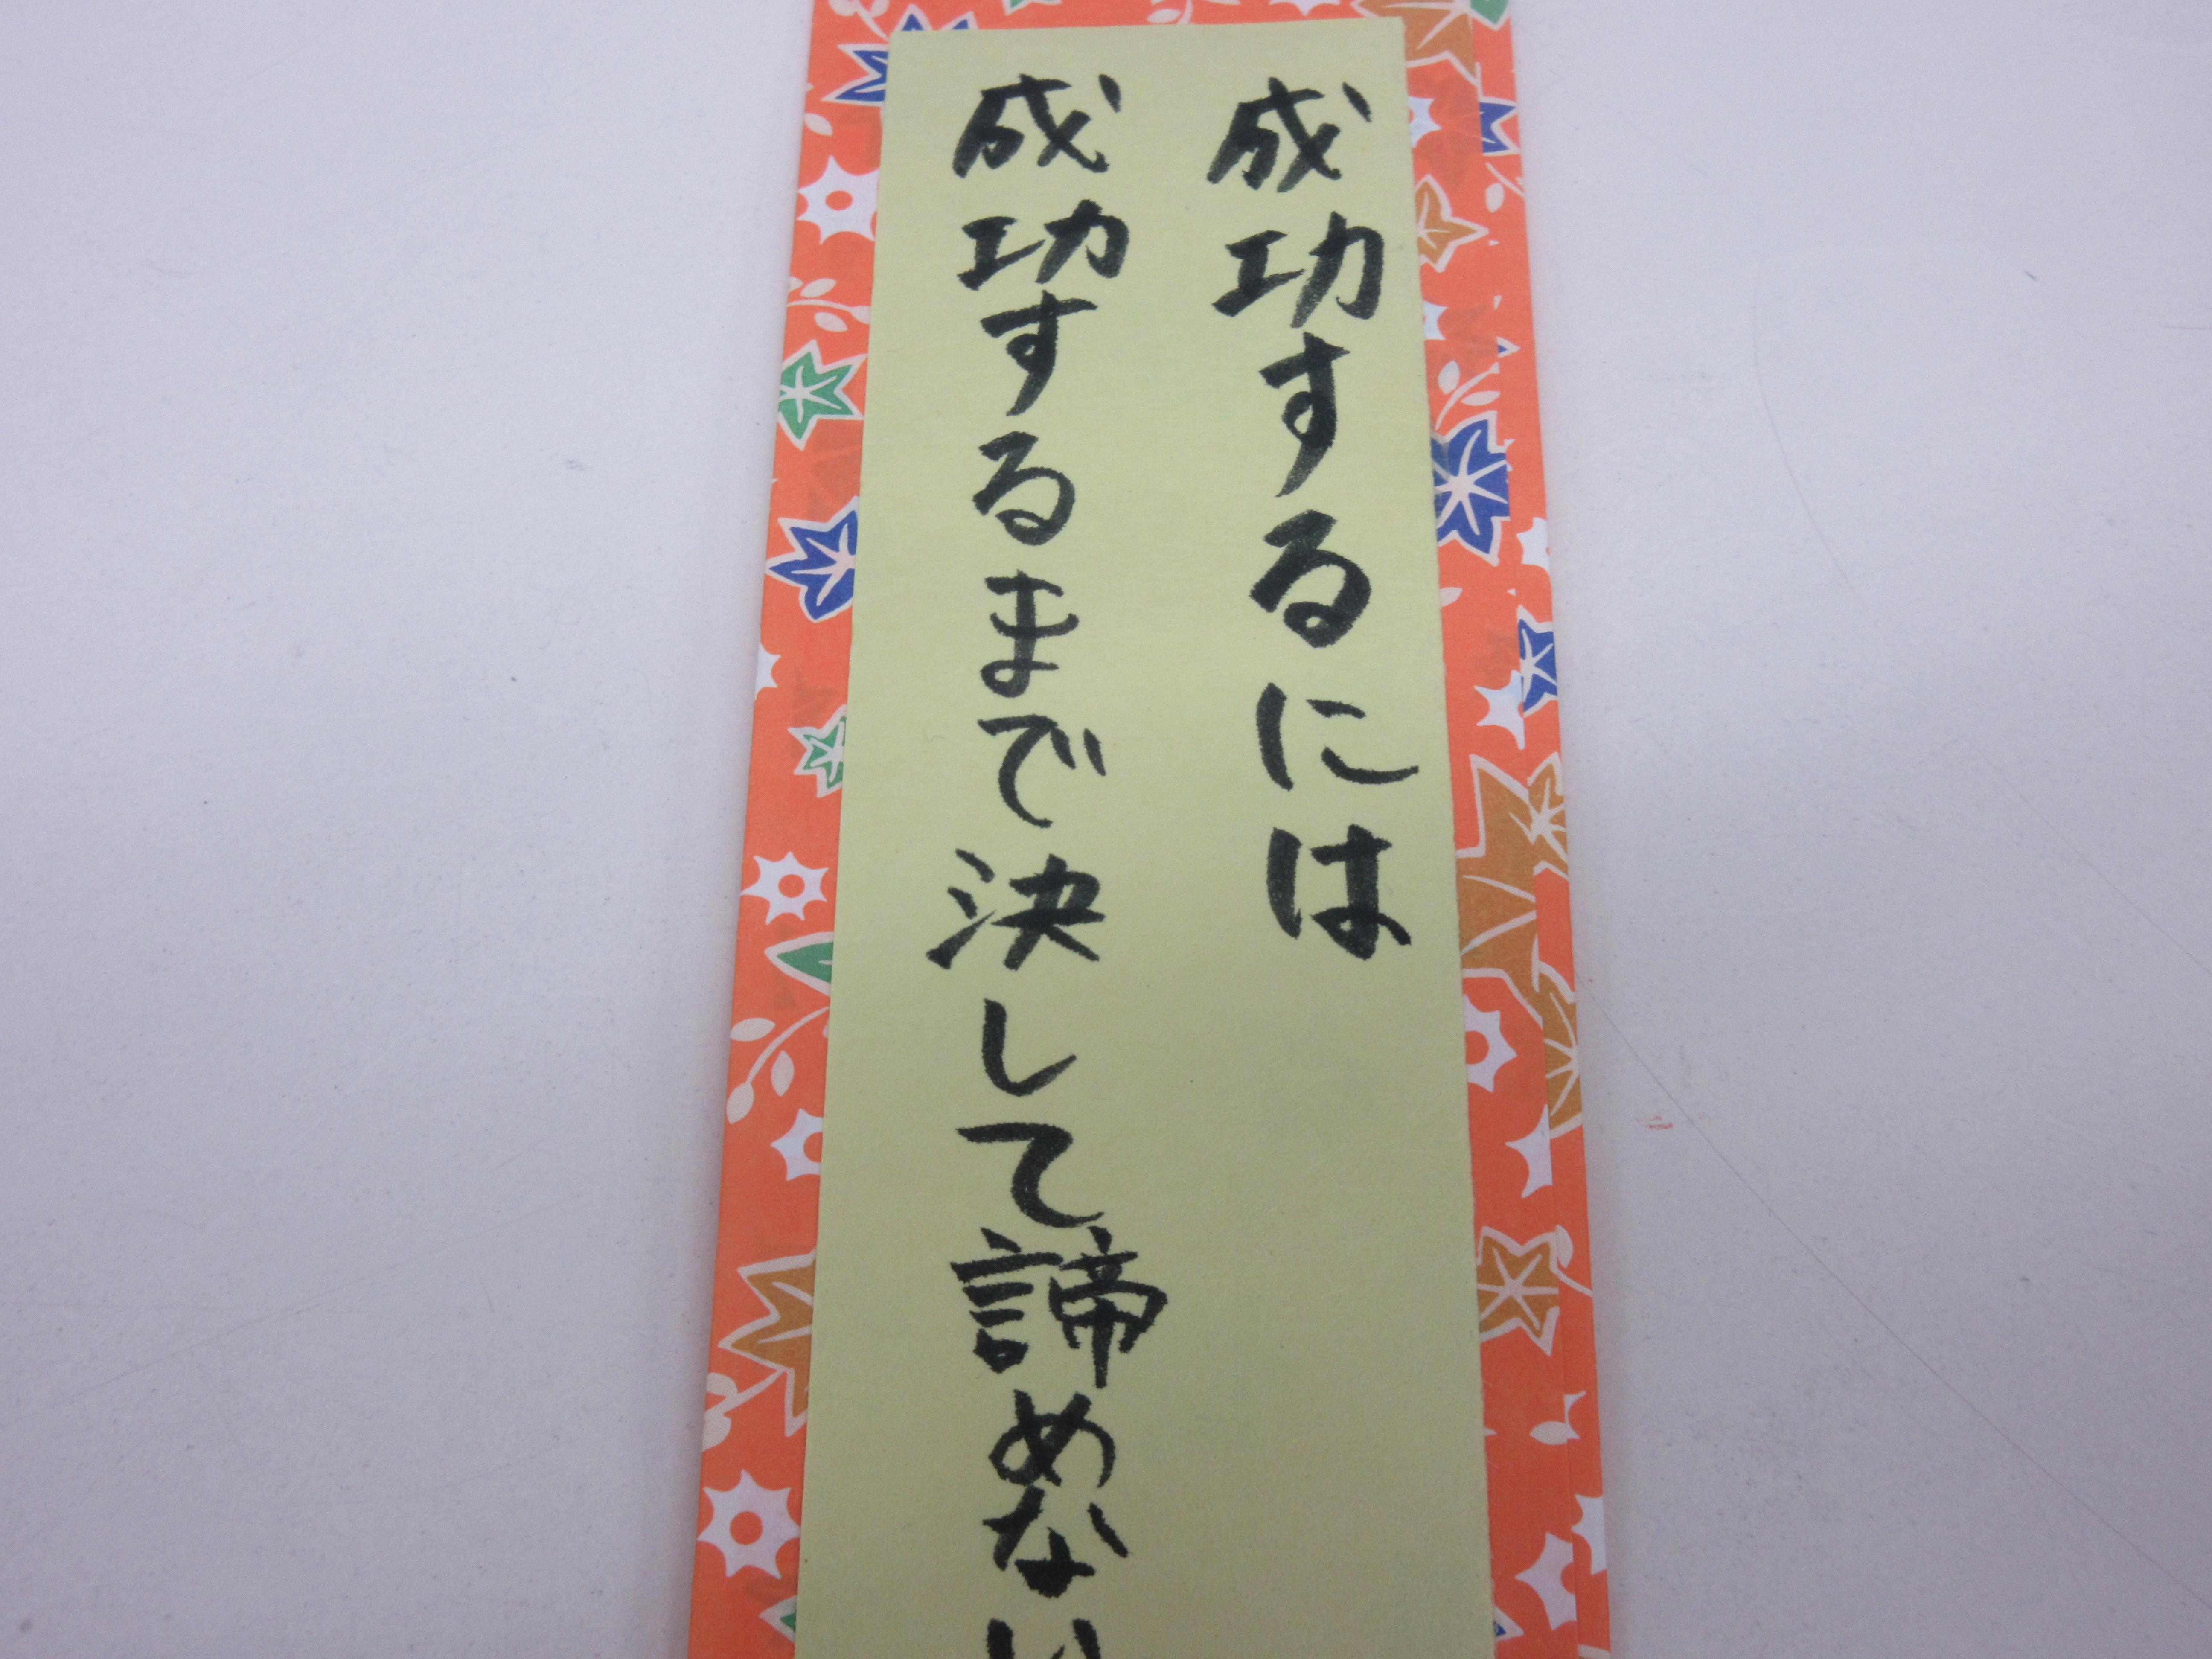 成功するには
成功するまで決して諦めない